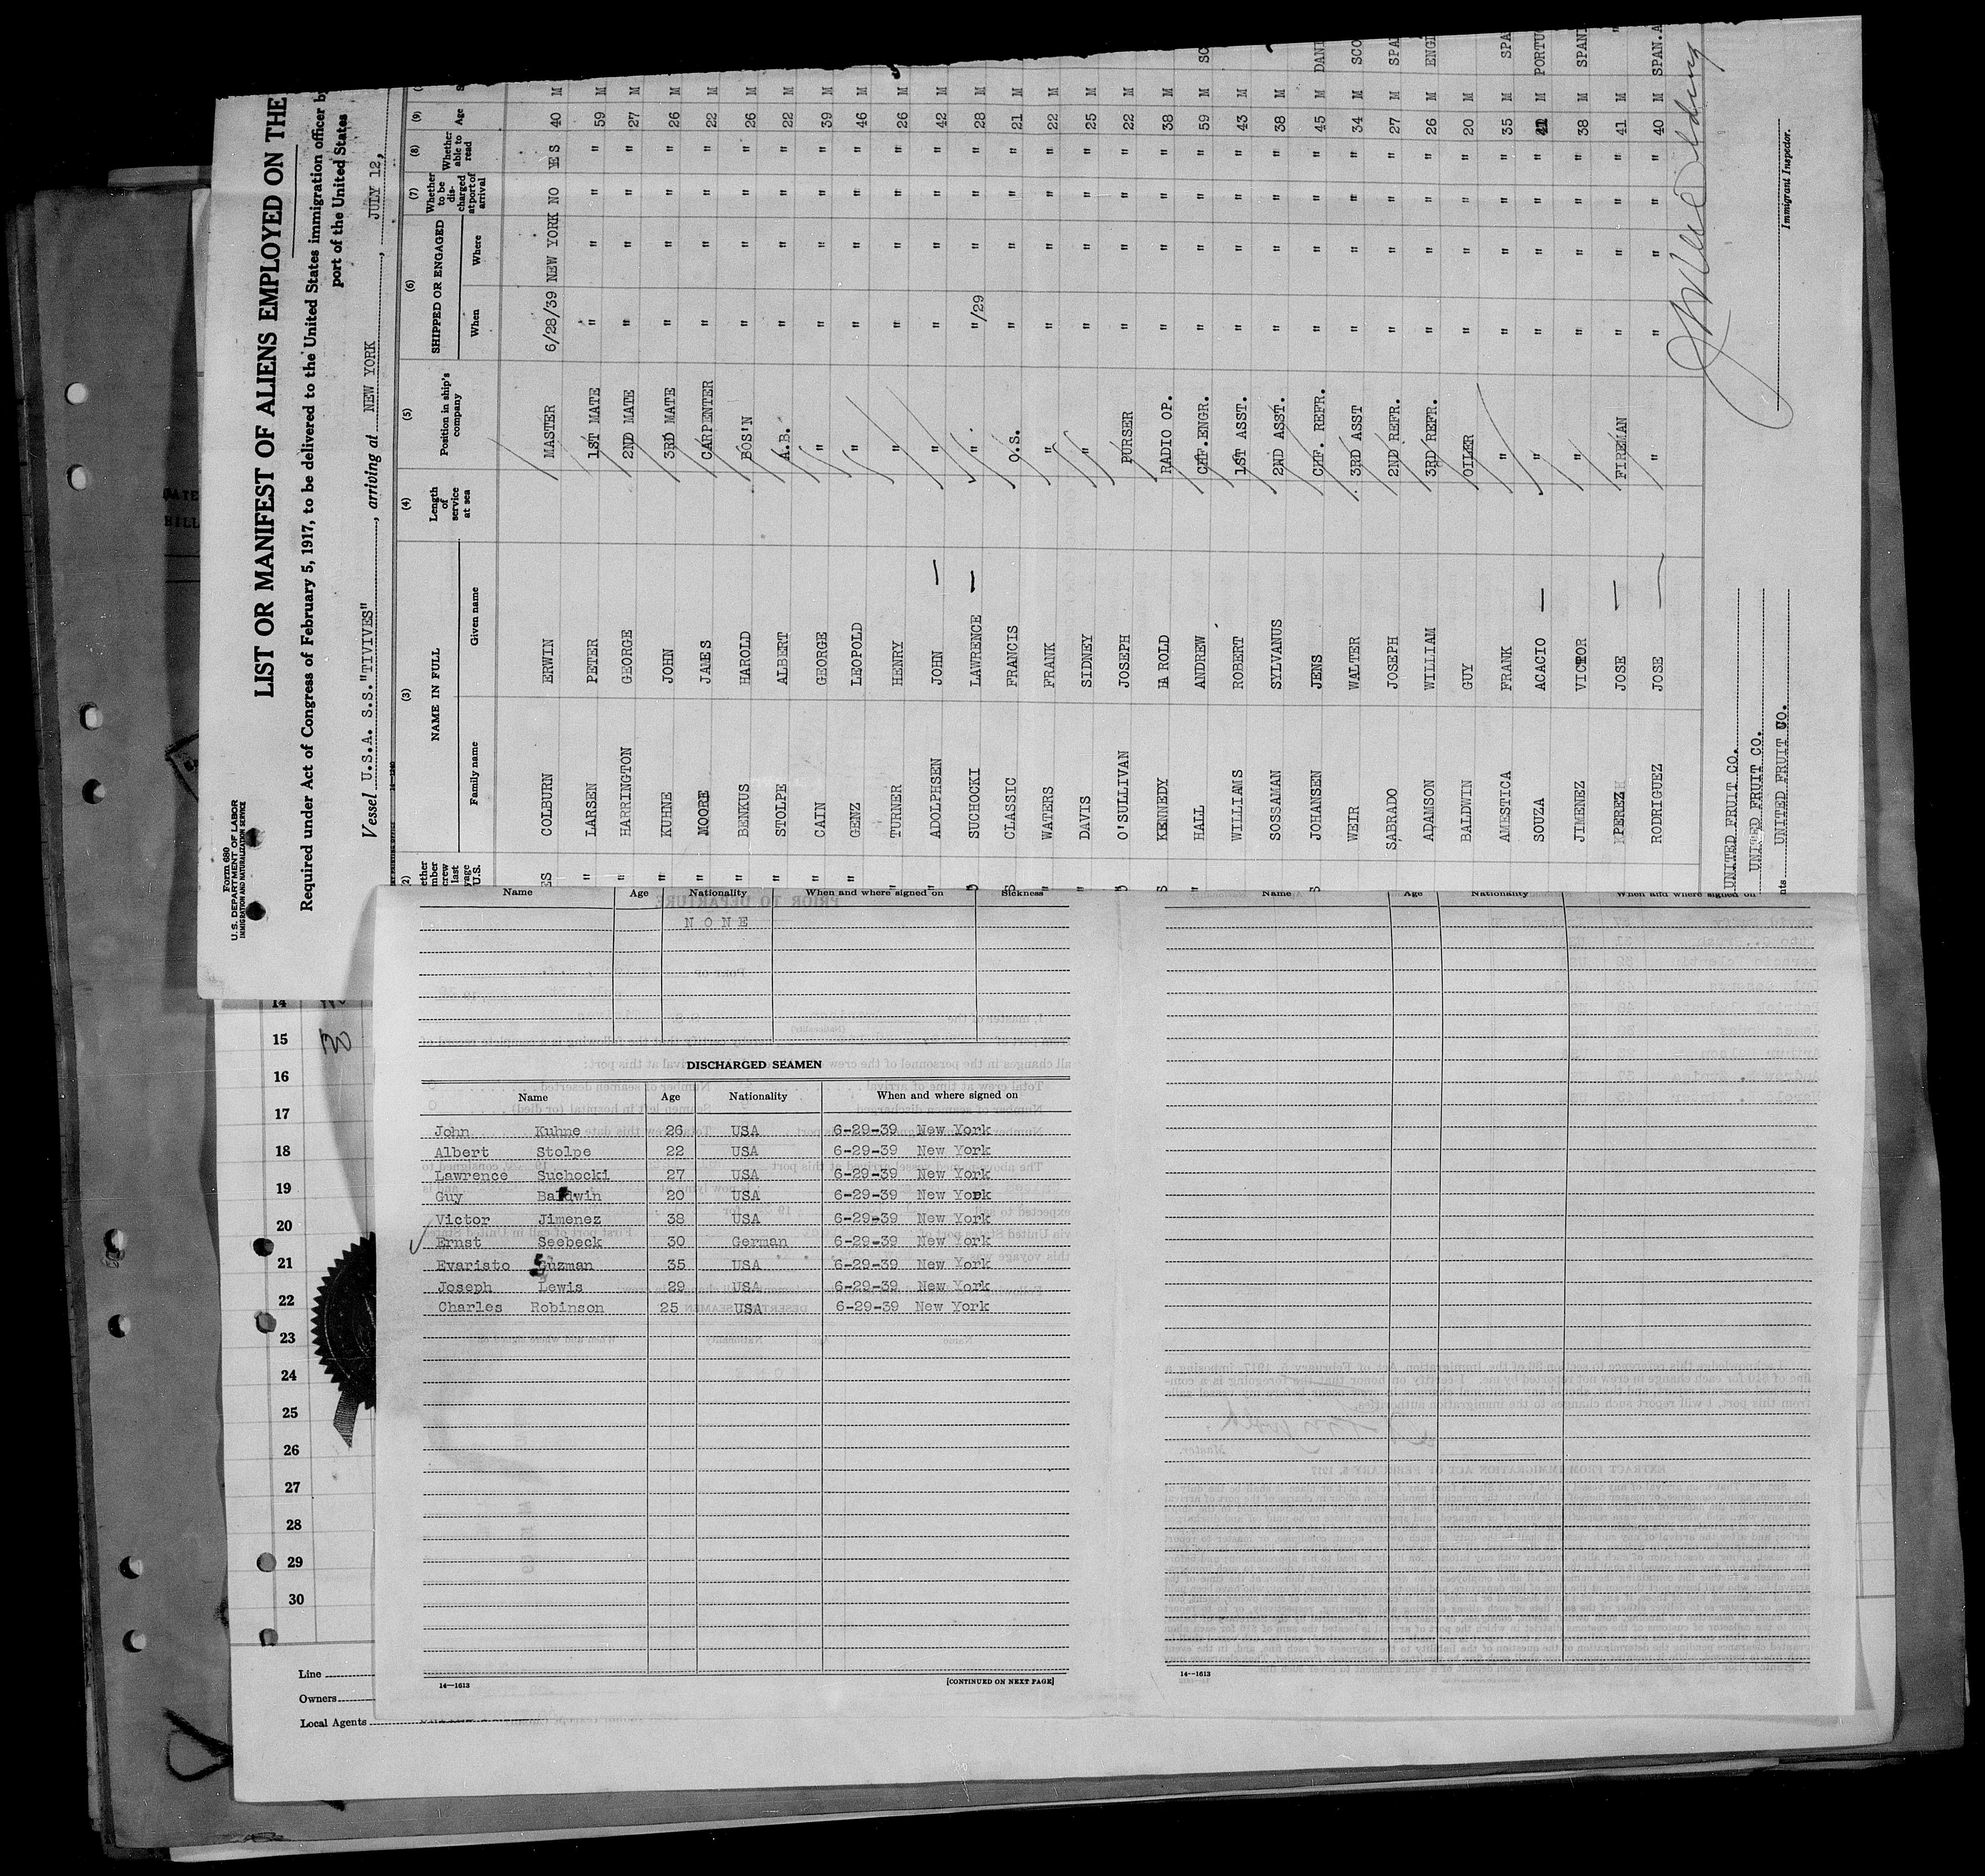 Form 680
U. S. DEPARTMENT OF LABOR
IMMIGRATION AND NATURALIZATION SERVICE
LIST OR MANIFEST OF ALIENS EMPLOYED ON THE
Required under Act of Congress of February 5, 1917, to be delivered to the United States immigration officer by
port of the United States
Vessel U.S.A. S.S."TIVIVES", arriving at NEW YORK, JULY 12,
(3) (4) (5) (6) (7) (8) (9)
NAME IN FULL Length of service at sea Position in ship's company SHIPPED OR ENGAGED Whether to be discharged at port of arrival Whether able to read Age
Family name Given name When Where
COLBURN ERWIN MASTER 6/28/39 NEW YORK NO YES 40 M
LARSEN PETER 1ST MATE " " " " 59 M
HARRINGTON GEORGE 2ND MATE " " " " 27 M
KUHNE JOHN 3RD MATE " " " " 26 M
MOORE JAMES CARPENTER " " " " 22 M
BENKUS HAROLD BOS'N " " " " 26 M
STOLPE ALBERT A.B. " " " " 22 M
CAIN GEORGE " " " " " 39 M
GENZ LEOPOLD " " " " " 46 M
TURNER HENRY " " " " " 26 M
ADOLPHSEN JOHN — " " " " " 42 M
SUCHOCKI LAWRENCE — " "/29 " " " 28 M
CLASSIC FRANCIS O.S. " " " " 21 M
WATERS FRANK " " " " " 22 M
DAVIS SIDNEY " " " " " 25 M
O'SULLIVAN JOSEPH PURSER " " " " 22 M
KENNEDY HAROLD RADIO OP. " " " " 38 M
HALL ANDREW CHF.ENGR. " " " " 59 M SC
WILLIAMS ROBERT 1ST ASST. " " " " 43 M
SOSSAMAN SYLVANUS 2ND ASST. " " " " 38 M
JOHANSEN JENS CHF. REFR. " " " " 45 M DANI
WEIR WALTER 3RD ASST " " " " 34 M SCO
SABRADO JOSEPH 2ND REFR. " " " " 27 M SPA
ADAMSON WILLIAM 3RD REFR. " " " " 26 M ENGI
BALDWIN GUY OILER " " " " 20 M
AMESTICA FRANK " " " " " 35 M SPA
SOUZA ACACIO — " " " " " M PORTU
JIMENEZ VICTOR " " " " " 38 M SPANI
PEREZ JOSE — FIREMAN " " " " 41 M "
RODRIGUEZ JOSE — " " " " " 40 M SPAN.A
UNITED FRUIT CO.
UNITED FRUIT CO.
UNITED FRUIT CO.
Immigrant Inspector.
Name Age Nationality When and where signed on Sickness
NONE
DISCHARGED SEAMEN
Name Age Nationality When and where signed on
John Kuhne 26 USA 6-29-39 New York
Albert Stolpe 22 USA 6-29-39 New York
Lawrence Suchocki 27 USA 6-29-39 New York
Guy Baldwin 20 USA 6-29-39 New York
Victor Jimenez 38 USA 6-29-39 New York
Ernst Seebeck 30 German 6-29-39 New York
Evaristo Guzman 35 USA 6-29-39 New York
Joseph Lewis 29 USA 6-29-39 New York
Charles Robinson 25 USA 6-29-39 New York
14—1613
[CONTINUED ON NEXT PAGE]
Name Age Nationality When and where signed on
14—1613
14
15
16
17
18
19
20
21
22
23
24
25
26
27
28
29
30
Line
Owners
Local Agents